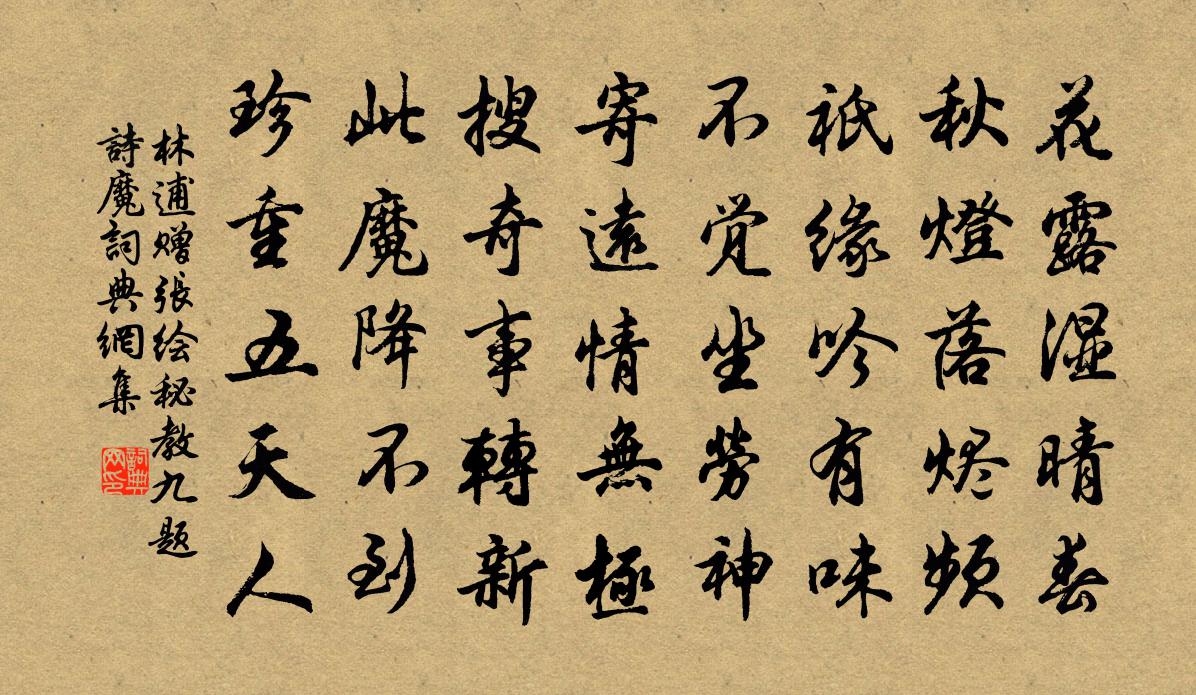 花露濕晴春
秋燈落烬频
祇緣吟有味
不覚坐勞神
寄遠情無極
搜奇事轉新
此魔降不到
珍重五天人
林逋赠張绘秘教九题
詩魔詞典網集
詞典网印